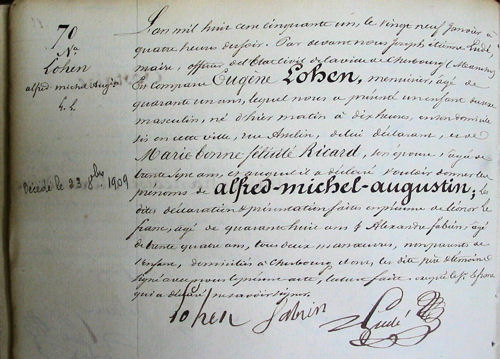 70
Nce
Lohen
alfred-michel-August
L. L.
Décédé le 23 8bre 1909
L'an mil huit cent cinquante un, le vingt neuf janvier à
quatre heures du soir. Par devant nous joseph étienne Ludé,
maire, officier de l'Etat civil de la ville de Cherbourg (Manche)
Est comparu Eugène Lohen, menuisier, âgé de
quarante un ans, lequel nous a présenté un enfant du sexe
masculin, né d'hier matin à dix heures, en son domicile
sis en cette ville, rue Asselin, de lui déclarant, et de
Marie bonne félicité Ricard, son épouse, âgée de
trente sept ans, et auquel il a déclaré vouloir donner les
prénoms de alfred-michel-augustin; les
dites déclaration et présentation faites en présence de léonor le
franc, âgé de quarante huit ans & Alexandre fabien, âgé
de trente quatre ans, tous deux manœuvres, non parents de
l'enfant, domiciliés à Cherbourg et ont, les dits père et témoins
signé avec nous le présent acte, lecture faite, excepté le Sr. le franc
qui a déclaré ne savoir signer.
Lohen fabien Ludé